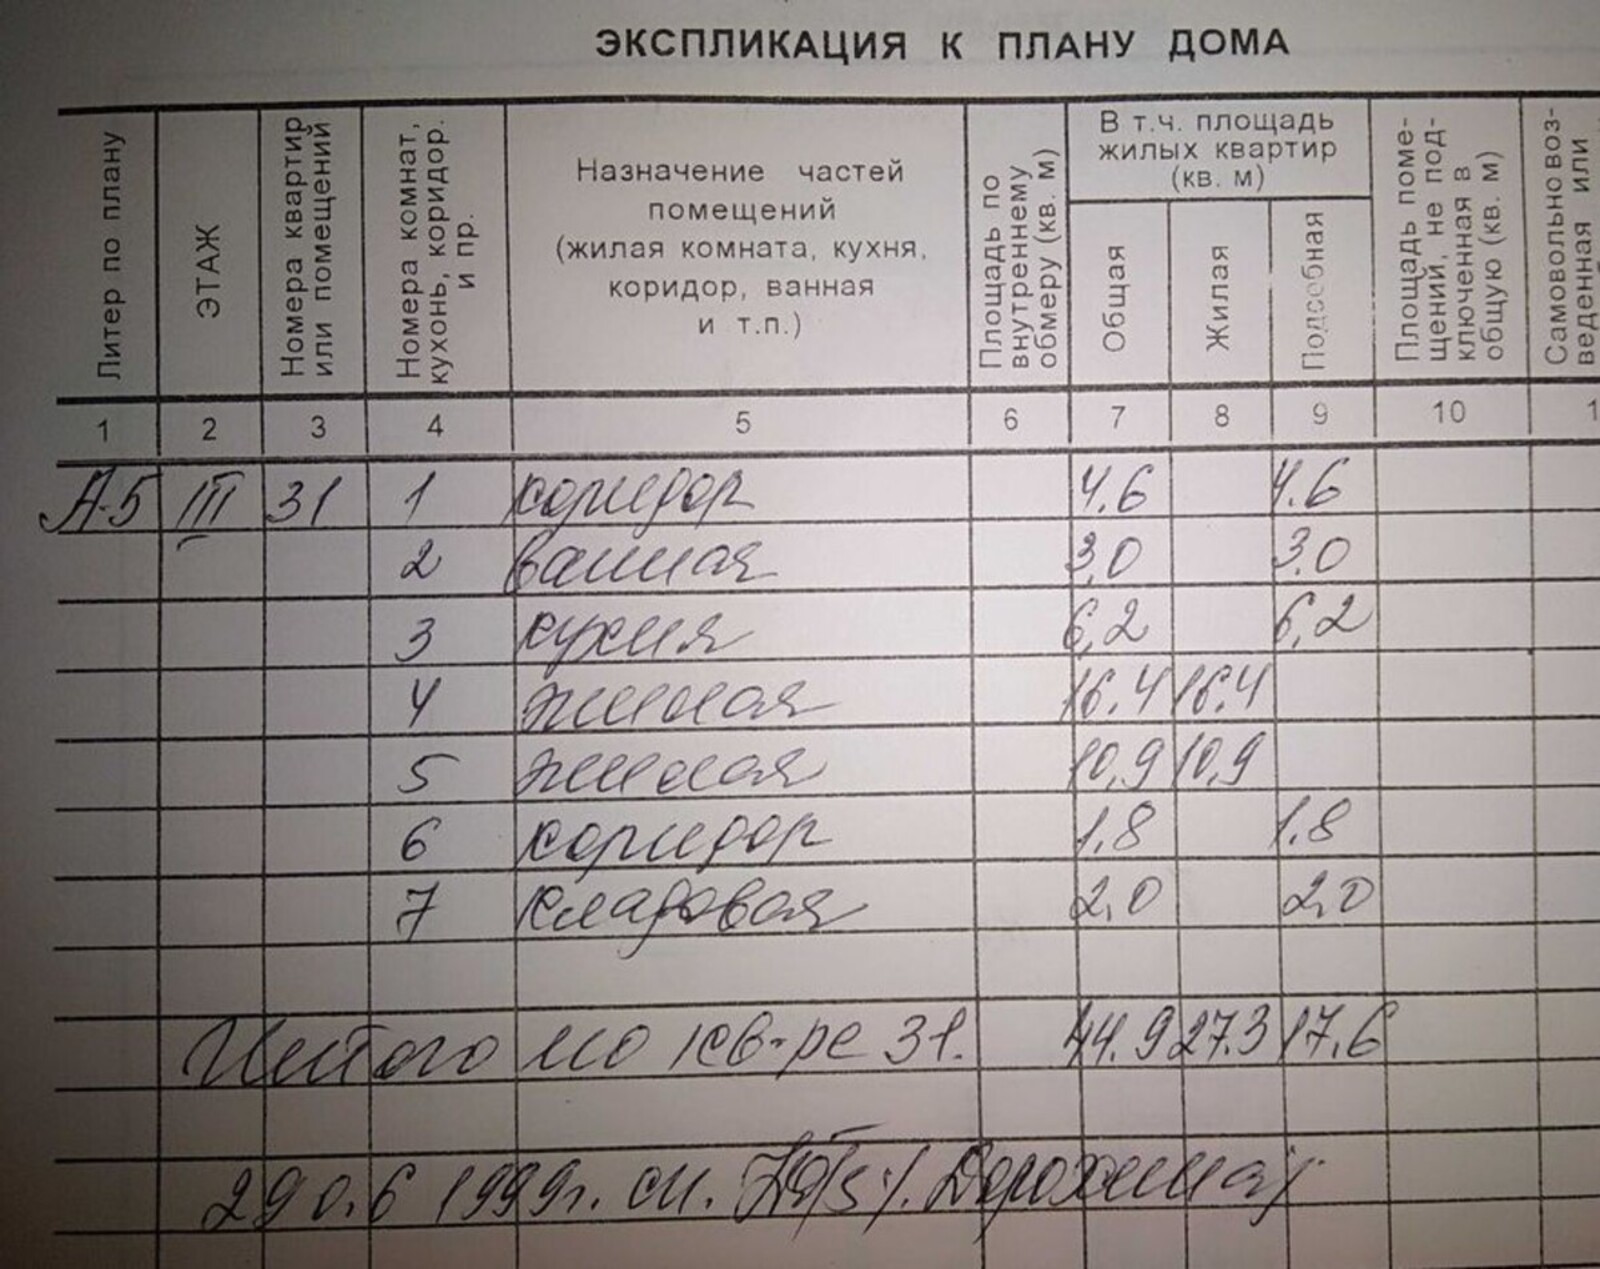 ЭКСПЛИКАЦИЯ К ПЛАНУ ДОМА
Литер по плану
ЭТАЖ
Номера квартир
или помещений
Номера комнат,
кухонь, коридор.
и пр.
Назначение частей
помещений
(жилая комната, кухня,
коридор, ванная
и т.п.)
Площадь по
внутреннему
обмеру (кв. м)
В т.ч. площадь
жилых квартир
(кв. м)
Общая
Жилая
Подсобная
Площадь поме-
щений, не под-
ключенная в
общую (кв. м)
Самовольно воз-
веденная или
1 2 3 4 5 6 7 8 9 10 1
А-5 III 31 1 коридор 4.6 4.6
2 ванная 3,0 3.0
3 кухня 6,2 6,2
4 жилая 16.4 16.4
5 жилая 10,9 10,9
6 коридор 1,8 1.8
7 кладовая 2,0 2,0
Итого по кв-ре 31. 44.9 27.3 17.6
29 0.6 1999г. Дорохина